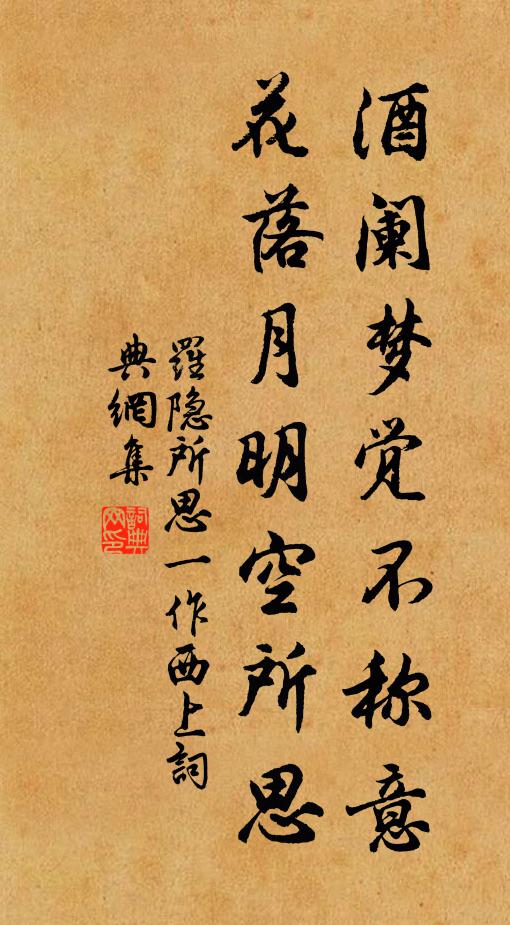 酒阑梦觉不称意
花落月明空所思
羅隐所思一作西上詞
典網集
詞典網印